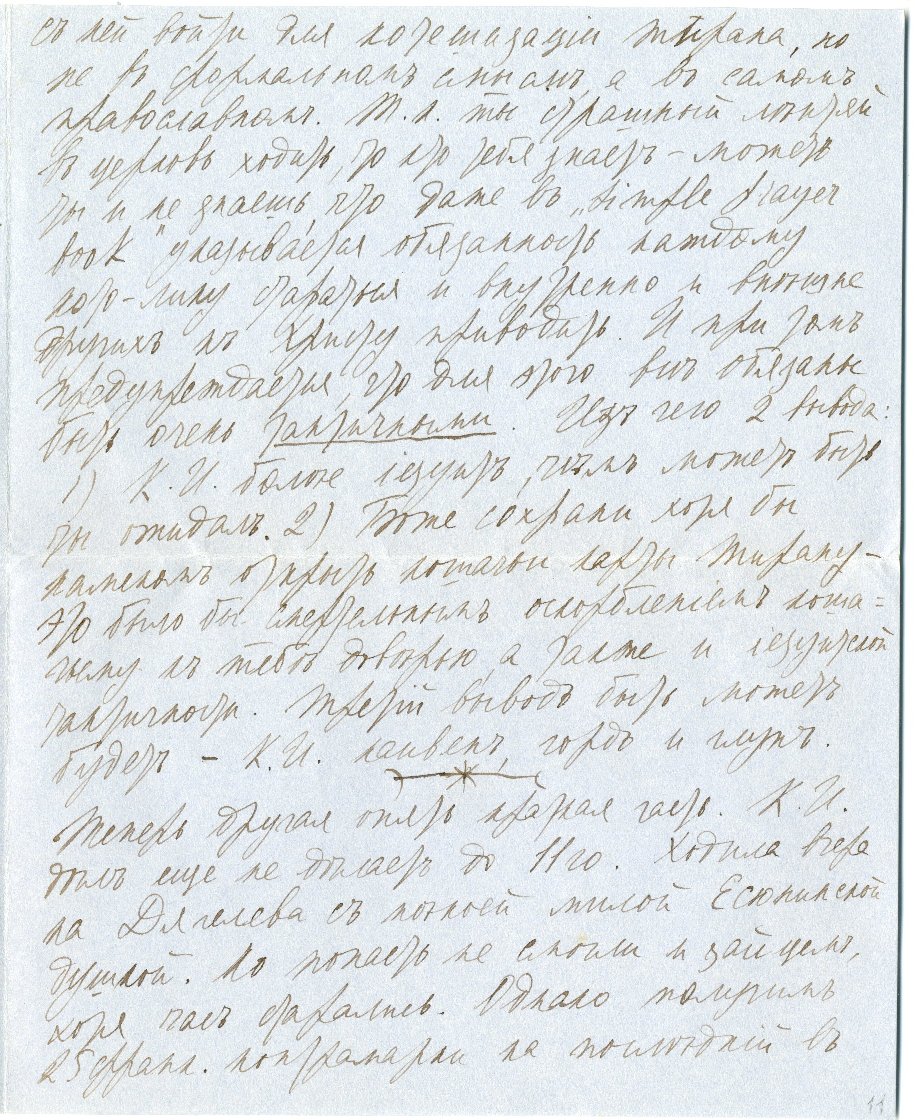 съ ней войти для котешизаціи Тирана, но
не въ формальномъ смыслѣ, а въ самомъ
православномъ. Т.к. ты страшный лѣнтяй
въ церковь ходить, то кто тебя знаетъ – можетъ
ты и не знаешь, что даже въ „Simple Prayer
book" указывается обязанность каждому
като-лику стараться и внутренно и внѣшне
другихъ къ Христу приводить. И при томъ
предупреждается, что для этого всѣ обязаны
быть очень тактичными. Изъ чего 2 вывода:
1) К.И. болѣе іезуитъ, чѣмъ можетъ быть
ты ожидалъ. 2) Боже сохрани хотя бы
намекомъ открыть кошачьи карты Тирану –
это было бы смертельнымъ оскорбленіемъ коша=
чьему къ тебѣ довѣрью, а также и іезуитской
тактичности. Третій выводъ быть можетъ
будетъ – К.И. наивенъ, гордъ и глупъ.
Теперь другая опять краткая часть. К.И.
домъ еще не до 11го. Ходила вчера
на Дягилева съ милой Есюнинской
душкой. Но попасть не смогли и зайцемъ,
хотя часъ старались. Однако получимъ
25 франк. контрамарки на послѣдній въ
11